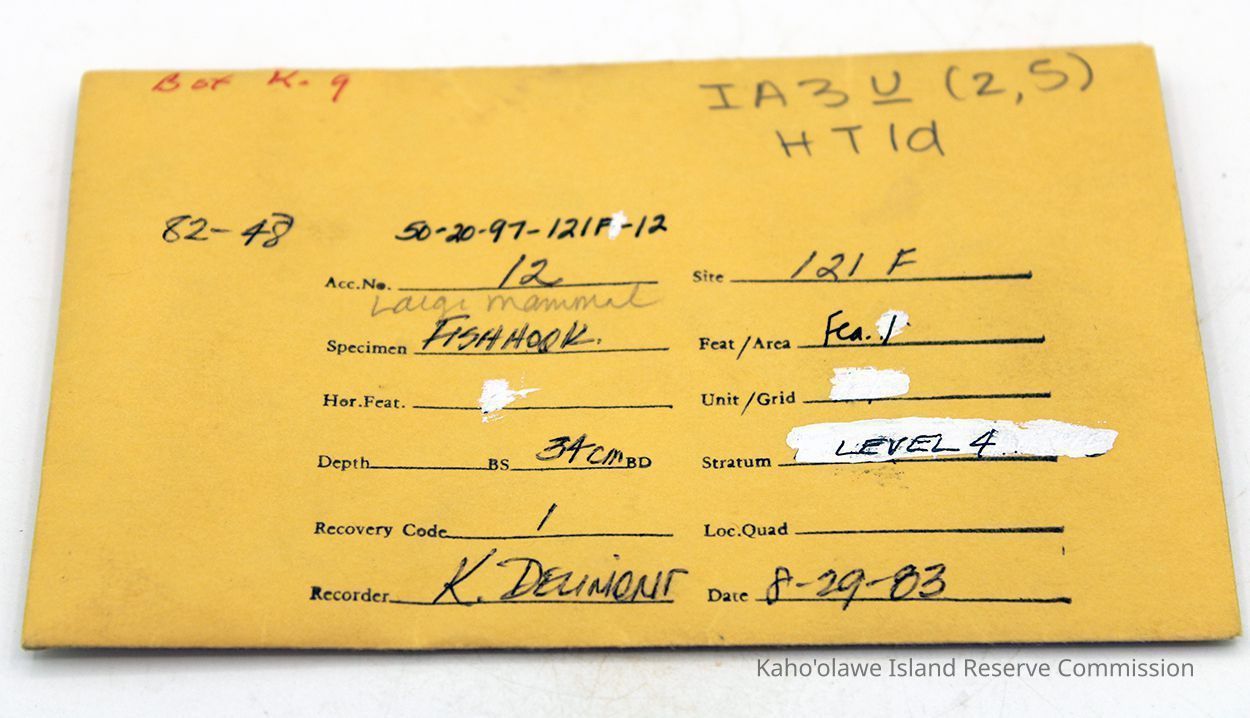 Box K-9
IA3U (2,5)
HT1d
82-48
50-20-97-121F-12
Acc.No. 12
Site 121 F
Large mammal
Specimen FISHHOOK.
Feat/Area Fea. 1
Hor.Feat.
Unit/Grid
Depth BS 34cm BD
Stratum LEVEL 4
Recovery Code 1
Loc.Quad
Recorder K. DELIMONT
Date 8-29-83
Kaho'olawe Island Reserve Commission